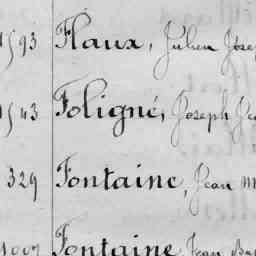 1593 Flaux, Julien Josep
1543 Foligné, Joseph Jea
329 Fontaine, Jean M
Fontaine, Jean Bap